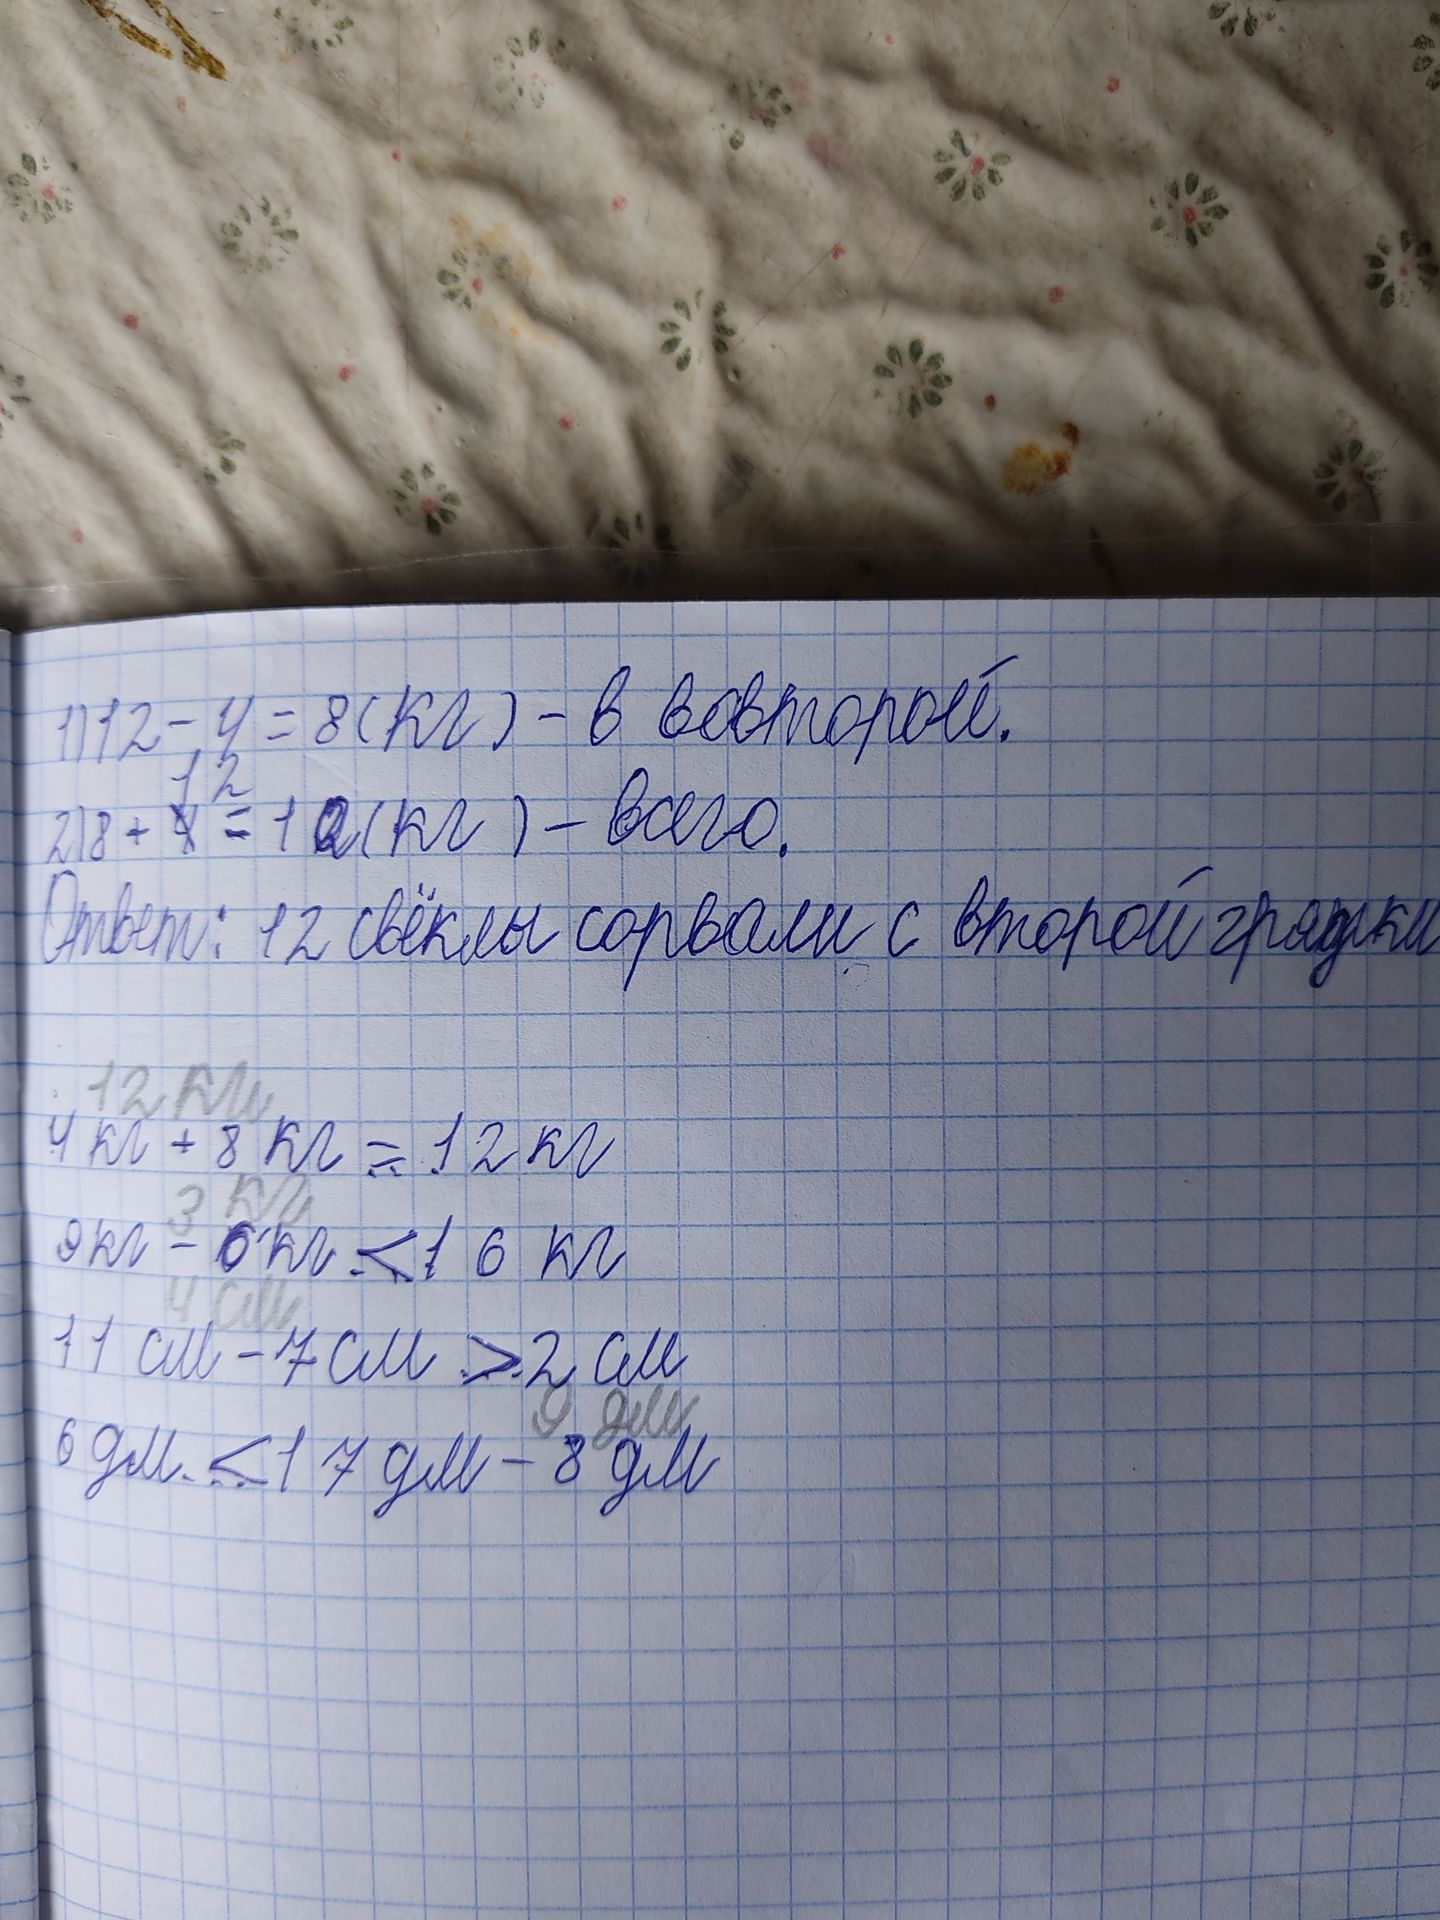 1) 12 - 4 = 8 (кг) - в вовторой.
12
2) 8 + = 1 (кг) - всего.
Ответ: 12 свёклы сорвали с второй грядки
12 кг
4 кг + 8 кг = 12 кг
3 кг
9 кг - 6 кг < 16 кг
4 см
11 см - 7 см > 2 см
9 дм
6 дм < 17 дм - 8 дм